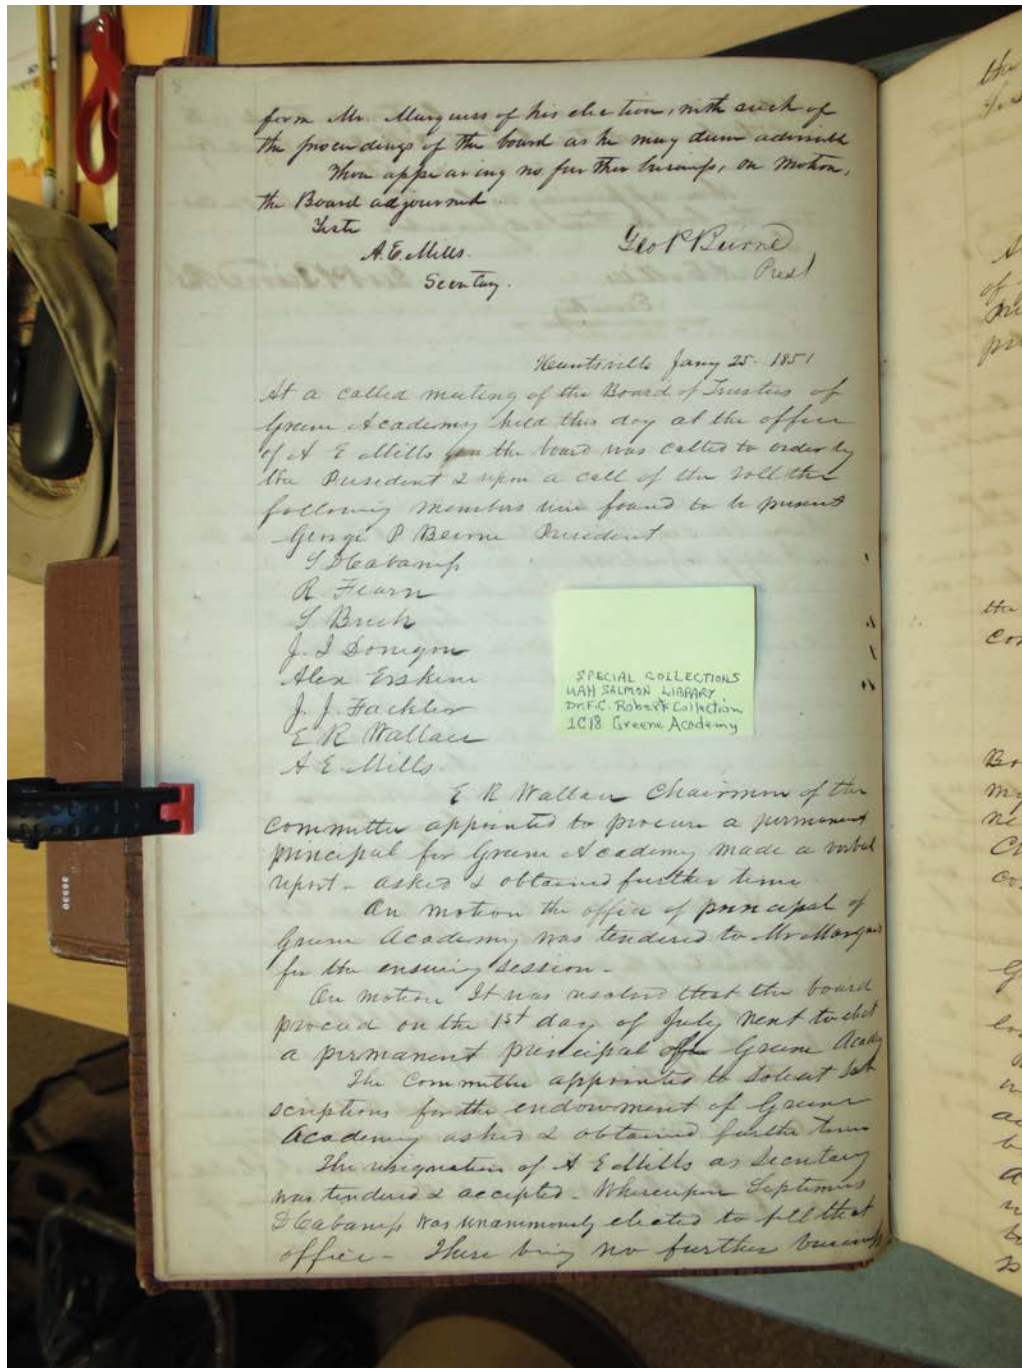 8
form Mr. Marquess of his election, with such of
the proceedings of the board as he may deem advisable
There appearing no further business, on motion,
the Board adjourned.
Teste
A. E. Mills.
Secretary.
Geo P Beirne
Prest
Huntsville Jany 25. 1851
At a called meeting of the Board of Trustees of
Greene Academy held this day at the office
of A E Mills the board was called to order by
the President & upon a call of the roll the
following members were found to be present
George P Beirne President
S D Cabaness
R. Fearn
S. Breck
J. I Donegan
Alex Erskine
J. J. Fackler
E R Wallace
A E Mills
E R Wallace Chairman of the
committee appointed to procure a permanent
principal for Greene Academy made a verbal
report - asked & obtained further time
On motion the office of principal of
Greene Academy was tendered to Mr Marquess
for the ensuing session -
On motion It was resolved that the board
proceed on the 1st day of July next to elect
a permanent principal of Greene Academy
The committee appointed to solicit sub
scriptions for the endowment of Greene
Academy asked & obtained further time
The resignation of A E Mills as Secretary
was tendered & accepted - Whereupon Septimus
D Cabaness was unanimously elected to fill that
office - There being no further business
SPECIAL COLLECTIONS
UAH SALMON LIBRARY
Dr. F.C. Roberts Collection
1C18 Greene Academy